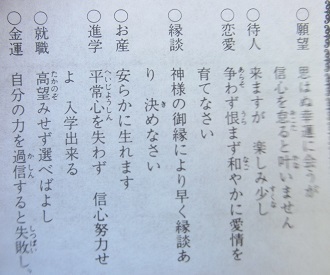 ○願望　思はぬ幸運に会うが
信心を怠ると叶いません
○待人　来ますが　楽しみ少し
○恋愛　争わず恨まず和やかに愛情を
育てなさい
○縁談　神様の御縁により早く縁談あ
り　決めなさい
○お産　安らかに生れます
○進学　平常心を失わず　信心努力せ
よ　入学出来る
○就職　高望みせず選べばよし
○金運　自分の力を過信すると失敗し